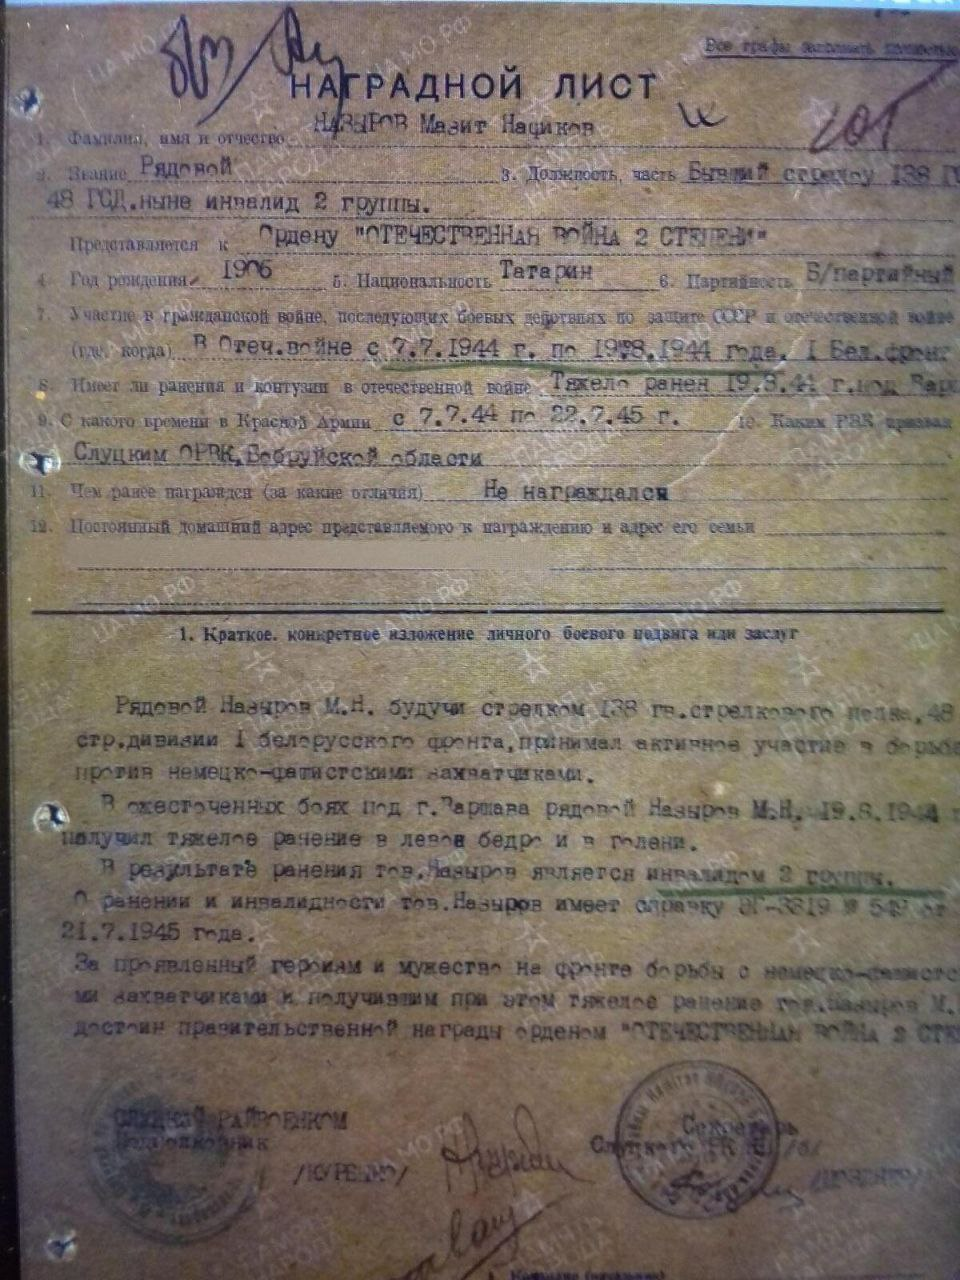 Все графы заполнять полностью
НАГРАДНОЙ ЛИСТ
1. Фамилия, имя и отчество НАЗЫРОВ Мазит
2. Звание Рядовой 3. Должность, часть Бывший стрелоу 138
48 ГСД.ныне инвалид 2 группы.
Представляется к Ордену "ОТЕЧЕСТВЕННАЯ ВОЙНА 2 СТЕПЕНИ"
4. Год рождения 1906 5. Национальность Татарин 6. Партийность Б/партийный
7. Участие в гражданской войне, последующих боевых действиях по защите СССР и отечественной войне
(где, когда) В Отеч.войне с 7.7.1944 г. по 19.8.1944 года. I Бел.фронт
8. Имеет ли ранения и контузии в отечественной войне Тяжело ранен 19.8.44 г.под
9. С какого времени в Красной Армии с 7.7.44 по 22.7.45 г. 10. Каким РВК призван
Слуцким ОРВК,Бобруйской области
11. Чем ранее награжден (за какие отличия) Не награждался
12. Постоянный домашний адрес представляемого к награждению и адрес его семьи
1. Краткое, конкретное изложение личного боевого подвига или заслуг
Рядовой Назыров М.Н. будучи стрелком 138 гв.стрелкового полка,48
стр.дивизии I белорусского фронта,принимал активное участие в борьбе
против немецко-фашистскими захватчиками.
В ожесточенных боях под г.Варшава рядовой Назыров М.Н. 19.8.1944
получил тяжелое ранение в левое бедро и в голени.
В результате ранения тов.Назыров является инвалидом 2 группы.
О ранении и инвалидности тов.Назыров имеет справку № 549 от
21.7.1945 года.
За проявленный героизм и мужество на фронте борьбы с
ми захватчиками и получившим при этом тяжелое ранение тов.Назыров М.
достоин правительственной награды орденом "ОТЕЧЕСТВЕННАЯ ВОЙНА 2
СЛУЦКИЙ РАЙВОЕНКОМ
Подполковник
Секретарь
Слуцкого
/КУРЕНКО/